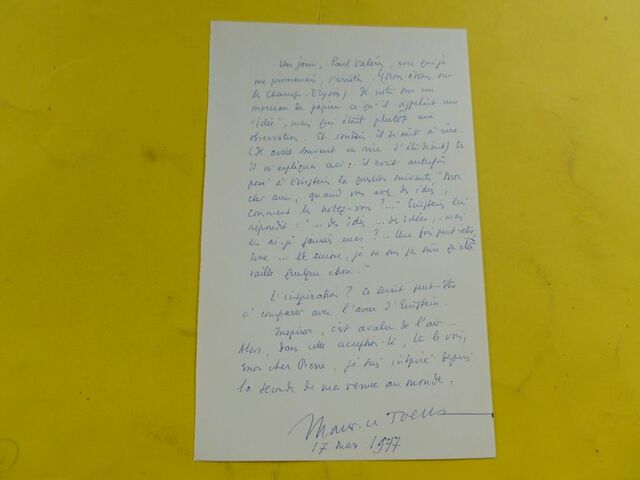 Un jour, Paul Valéry, avec qui je
me promenais, s'arrêta. (Nous étions sur
les Champs-Elysées) Il nota sur un
morceau de papier ce qu'il appelait une
"idée", mais qui était plutôt une
observation. Et soudain il se mit à rire.
(Il avait souvent un rire d'étudiant) Et
il m'expliqua ceci : il avait autrefois
posé à Einstein la question suivante "Mon
cher ami, quand vous avez des idées,
comment les notez-vous ?..." Einstein lui
répondit : "... des idées ... des idées, - mais
en ai-je jamais eues ? .. Une fois peut-être,
une ... Et encore, je ne suis pas sûre qu'elle
vaille quelque chose."
L'inspiration ? Ce serait peut-être
à comparer avec l'aveu d'Einstein.
Inspirer, c'est avaler de l'air ...
Alors, dans cette acception-là, tu le vois,
mon cher Pierre, je suis inspiré depuis
la seconde de ma venue au monde.
Maurice Toesca
17 mars 1977